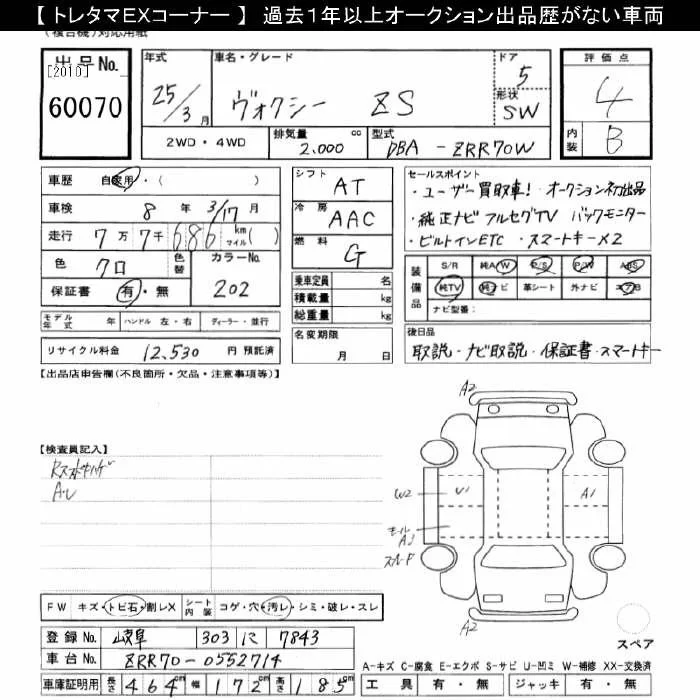 【 トレタマEXコーナー 】 過去１年以上オークション出品歴がない車両
(複合機)対応用紙
出品No.
[2010]
60070
年式
25/3月
車名・グレード
ヴォクシー ZS
ドア
5
形状
SW
評価点
4
内装
B
2WD・4WD
排気量
2.000 cc
型式
DBA - ZRR70W
車歴 自家用・( )
車検 8年 3/17月
走行 7万7千686 km マイル( )
色 クロ
色替
カラーNo.
202
保証書 有・無
モデル年式 年
ハンドル 左・右
ディーラー・並行
リサイクル料金 12,530 円 預託済
シフト
AT
冷房
AAC
燃料
G
乗車定員 名
積載量 kg
総重量 kg
名変期限
月 日
セールスポイント
・ユーザー買取車! オークション初出品
・純正ナビ フルセグTV バックモニター
・ビルトインETC・スマートキー×2
装備品
S/R 純A/W P/S P/W ABS
純TV 純ナビ 革シート 外ナビ エアB
ナビ型番:
後日品
取説・ナビ取説・保証書・スマートキー
【出品店申告欄(不良箇所・欠品・注意事項等)】
【検査員記入】
A・U
A2
W2
U1
A1
モール
A1
A2
スペア
FW キズ・トビ石・割レX
シート内装 コゲ・穴・汚レ・シミ・破レ・スレ
登録No. 岐阜 303 に 7843
車台No. ZRR70-0552714
車庫証明用 長さ 464cm 幅 172cm 高さ 185cm
A-キズ C-腐食 E-エクボ S-サビ U-凹ミ W-補修 XX-交換済
工具 有・無 ジャッキ 有・無